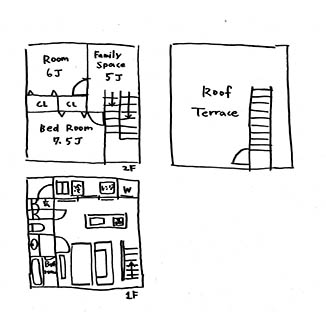 Room
6J
Family
Space
5J
CL
CL
Bed Room
7.5J
2F
Roof
Terrace
冷
W
玄
Bath
room
1F